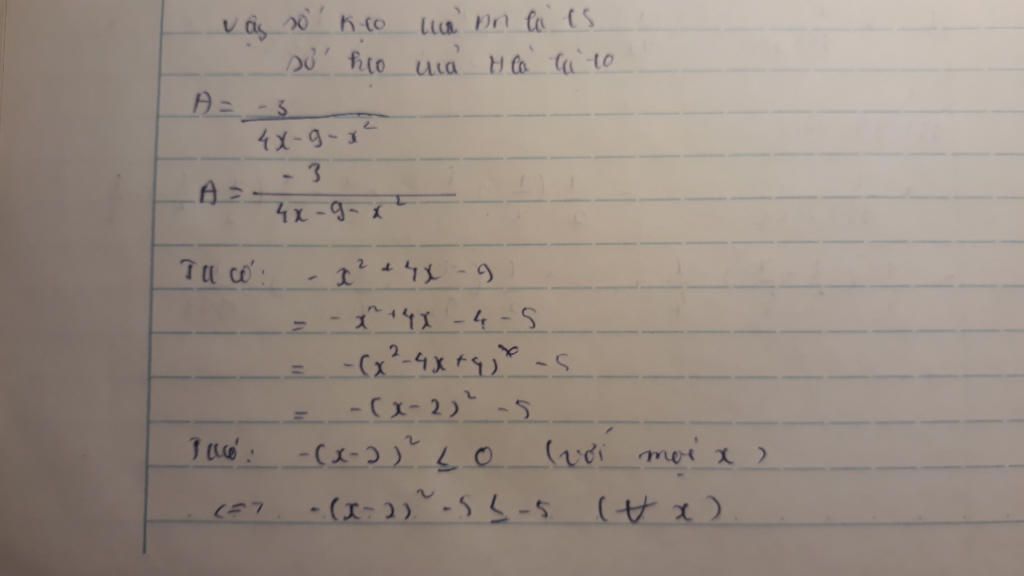 Vậy số kẹo của An là 15
số kẹo của Hà là 10
A = -3 / 4x - 9 - x²
A = -3 / 4x - 9 - x²
Ta có: - x² + 4x - 9
= - x² + 4x - 4 - 5
= -(x² - 4x + 4) - 5
= -(x - 2)² - 5
Ta có: -(x - 2)² ≤ 0 (với mọi x)
<=> -(x - 2)² - 5 ≤ -5 (∀ x)